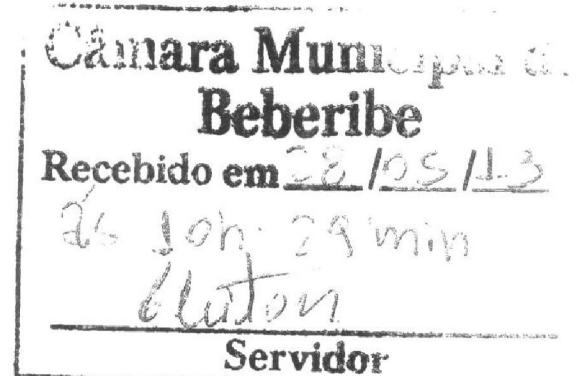 Câmara Municipal de
Beberibe
Recebido em 28/05/13
às 10h. 29 min
Servidor